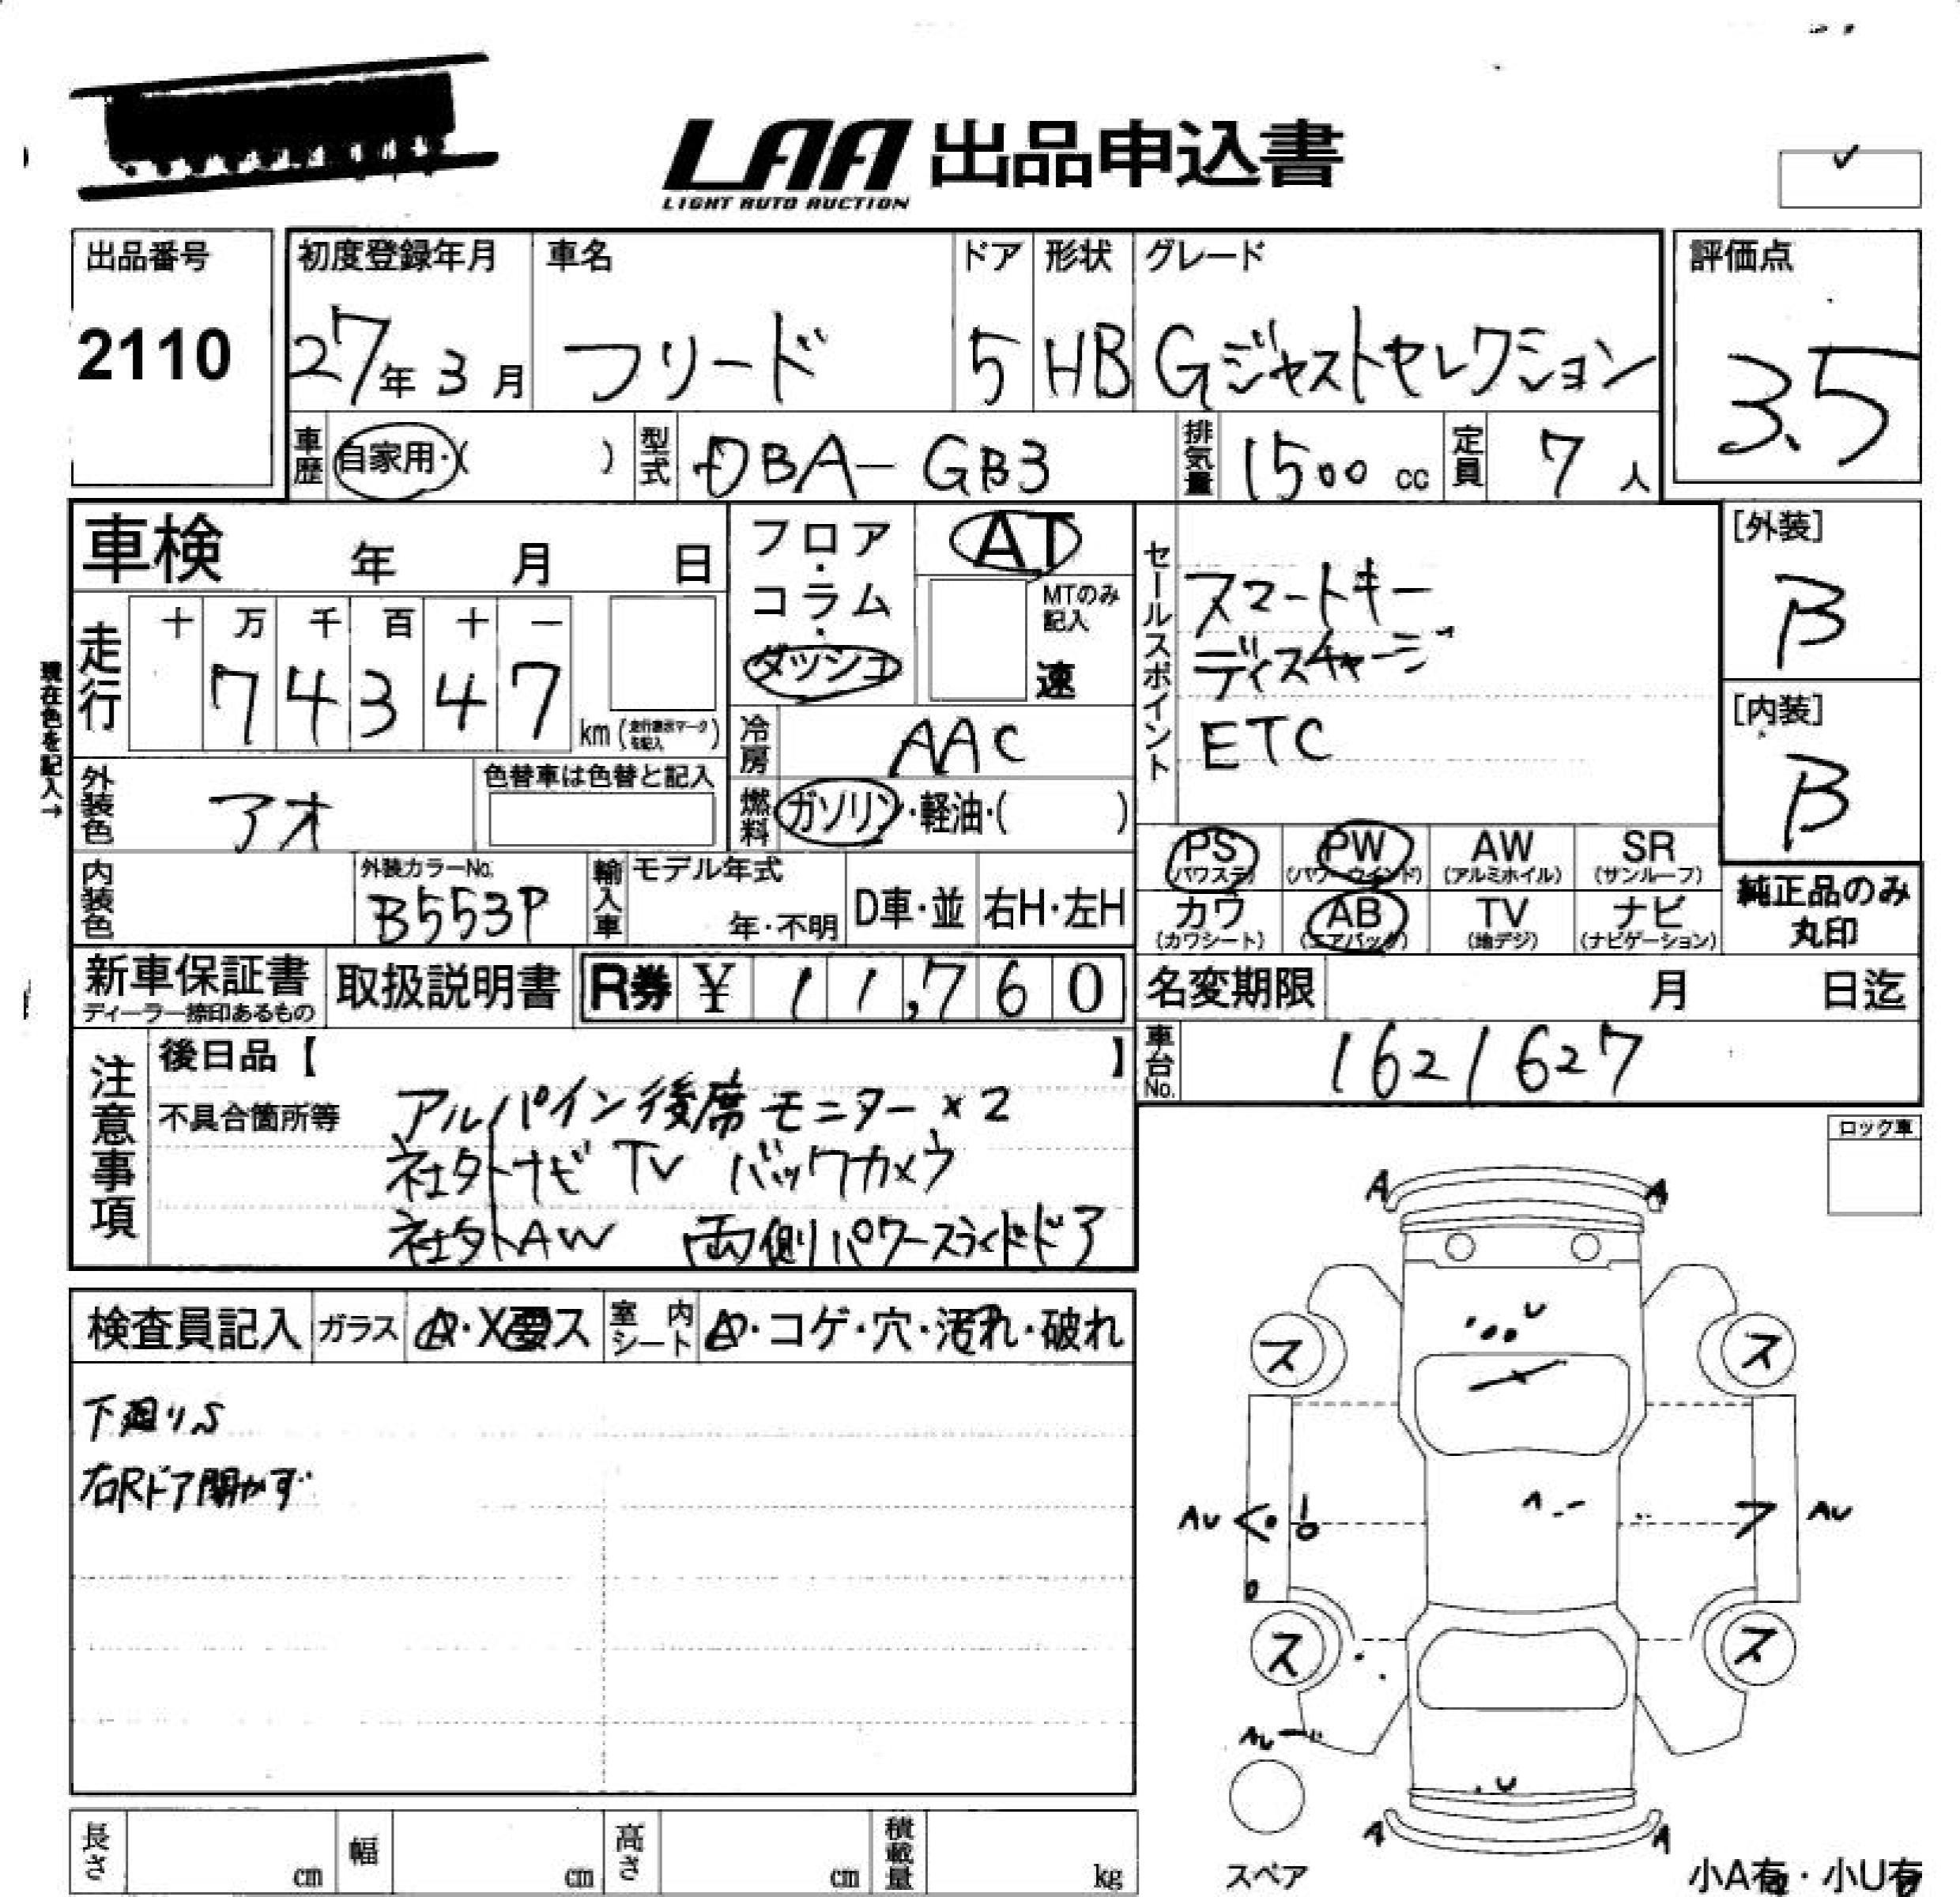 LAA 出品申込書
LIGHT AUTO AUCTION
出品番号
2110
初度登録年月
27年 3月
車名
フリード
ドア
5
形状
HB
グレード
Gジャストセレクション
評価点
3.5
車歴
自家用・( )
型式
DBA-GB3
排気量
1500 cc
定員
7 人
車検 年 月 日
フロア・コラム・ダッシュ
AT
MTのみ記入
速
セールスポイント
スマートキー
ディスチャージ
ETC
[外装]
B
[内装]
B
現在色を記入→
走行
十 万 千 百 十 一
7 4 3 4 7
km (走行表示マークを記入)
冷房
AAC
外装色
アオ
色替車は色替と記入
燃料
ガソリン・軽油・( )
PS (パワステ)
PW (パワーウインド)
AW (アルミホイル)
SR (サンルーフ)
カワ (カワシート)
AB (エアバック)
TV (地デジ)
ナビ (ナビゲーション)
純正品のみ
丸印
内装色
外装カラーNo.
B553P
輸入車
モデル年式
年・不明
D車・並
右H・左H
新車保証書
ディーラー捺印あるもの
取扱説明書
R券 ¥ 11,760
名変期限 月 日迄
車台No.
1621627
注意事項
後日品【 】
不具合箇所等
アルパイン後席モニター×2
社外ナビ TV バックカメラ
社外AW 両側パワースライドドア
ロック車
検査員記入
ガラス
A・X要ス
室内シート
コゲ・穴・汚れ・破れ
下廻りS
右Rドア開かず
A A
U
ス ス
AU AU
ス ス
AU
U
A A
スペア
小A有・小U有
長さ cm
幅 cm
高さ cm
積載量 kg